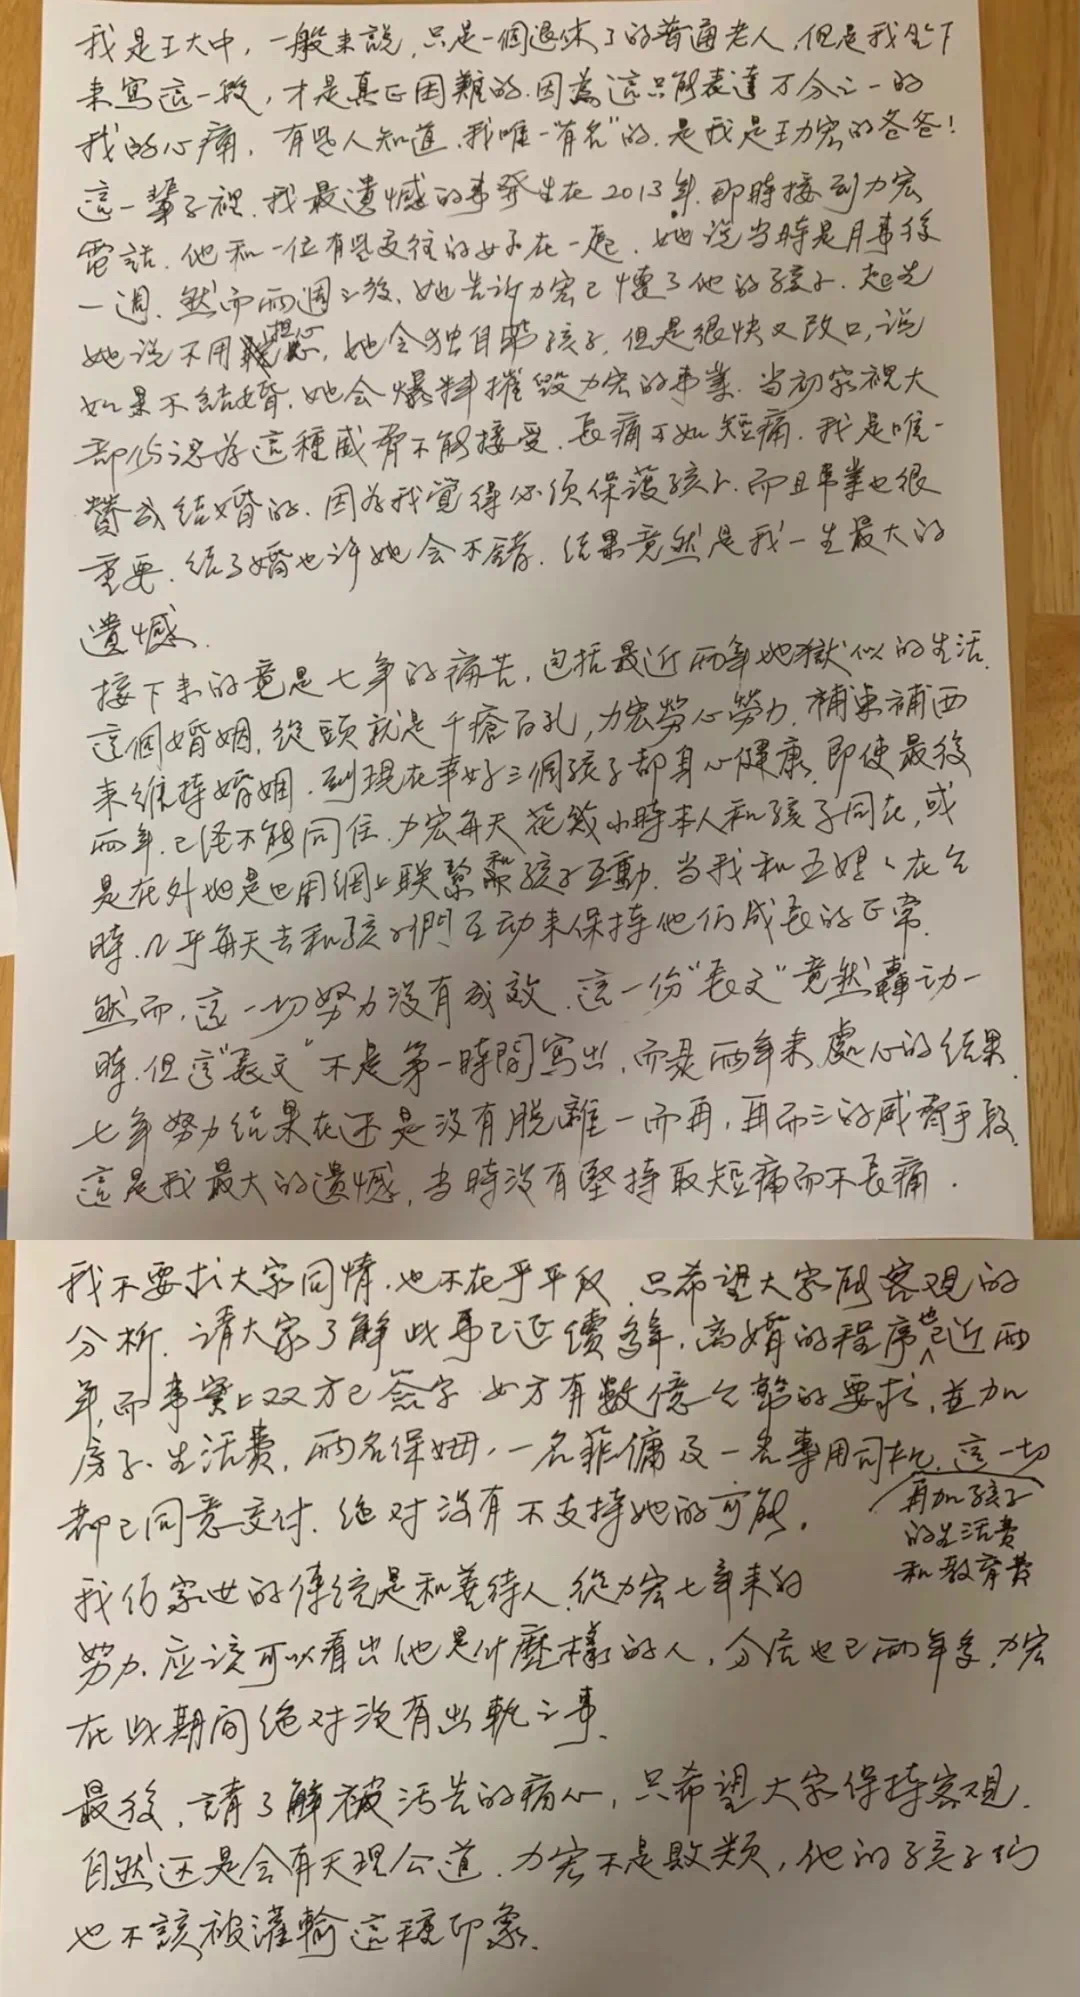 我是王大中，一般來說，只是一個退休了的普通老人，但是我坐下
來寫這一段，才是真正困難的.因為這只能表達万分之一的
我的心痛，有些人知道.我唯一"有名"的.是我是王力宏的爸爸！
這一輩子裡.我最遺憾的事發生在2013年.那時接到力宏
電話.他和一位有些交往的女子在一起.她說当時是月事後
一週.然而兩週之後.她告訴力宏已懷了他的孩子.起先
她说不用担心，她会独自帶孩子.但是很快又改口，说
如果不結婚.她会爆料摧毀力宏的事業.当初家裡大
部份認為這種威脅不能接受.長痛不如短痛.我是唯一
贊成结婚的.因为我覺得必須保護孩子.而且事業也很
重要.结了婚也許她会不錯.结果竟然是我一生最大的
遺憾.
接下來的竟是七年的痛苦，包括最近兩年地獄似的生活.
這個婚姻.從頭就是千瘡百孔，力宏勞心勞力.補東補西
來維持婚姻.到現在幸好三個孩子都身心健康.即使最後
兩年.已经不能同住.力宏每天花幾小時本人和孩子同在，或
是在外地是也用網上联繫和孩子互動.当我和王媽媽在台
時.几乎每天去和孩子們互动來保持他们成長的正常.
然而，這一切努力没有成效.這一份"長文"竟然轟动一
時.但這"長文"不是第一時間寫出，而是兩年來處心的结果.
七年努力结果在还是没有脱離一而再，再而三的威脅手段.
這是我最大的遺憾，当時没有堅持取短痛而不長痛.
我不要求大家同情.也不在乎平反.只希望大家能客观的
分析.请大家了解此事已延續多年.离婚的程序也已近兩
年，而事實上双方已簽字 女方有數億台幣的要求，並加
房子.生活費，兩名保姆，一名菲傭及一名專用司机.這一切
再加孩子
的生活费
和教育費
都已同意交付.绝对没有不支持她的可能.
我们家世的傳統是和善待人.從力宏七年來的
努力.应该可以看出他是什麼樣的人，分居也已兩年多.力宏
在此期间绝对没有出軌之事.
最後，請了解被污告的痛心，只希望大家保持客观.
自然还是会有天理公道.力宏不是敗類，他的孩子们
也不該被灌輸這種印象.